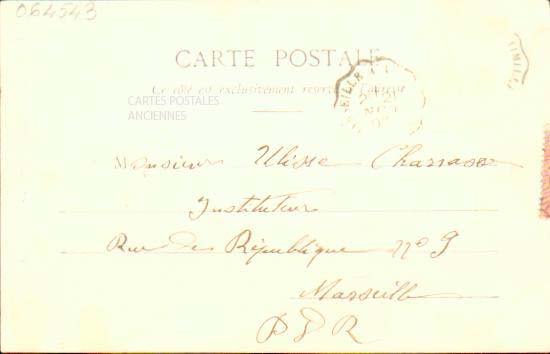 064543
CARTE POSTALE
Ce côté est exclusivement réservé à l'adresse
CARTES POSTALES
ANCIENNES
Monsieur Ulisse
Instituteur
Rue des République nº 9
Marseille